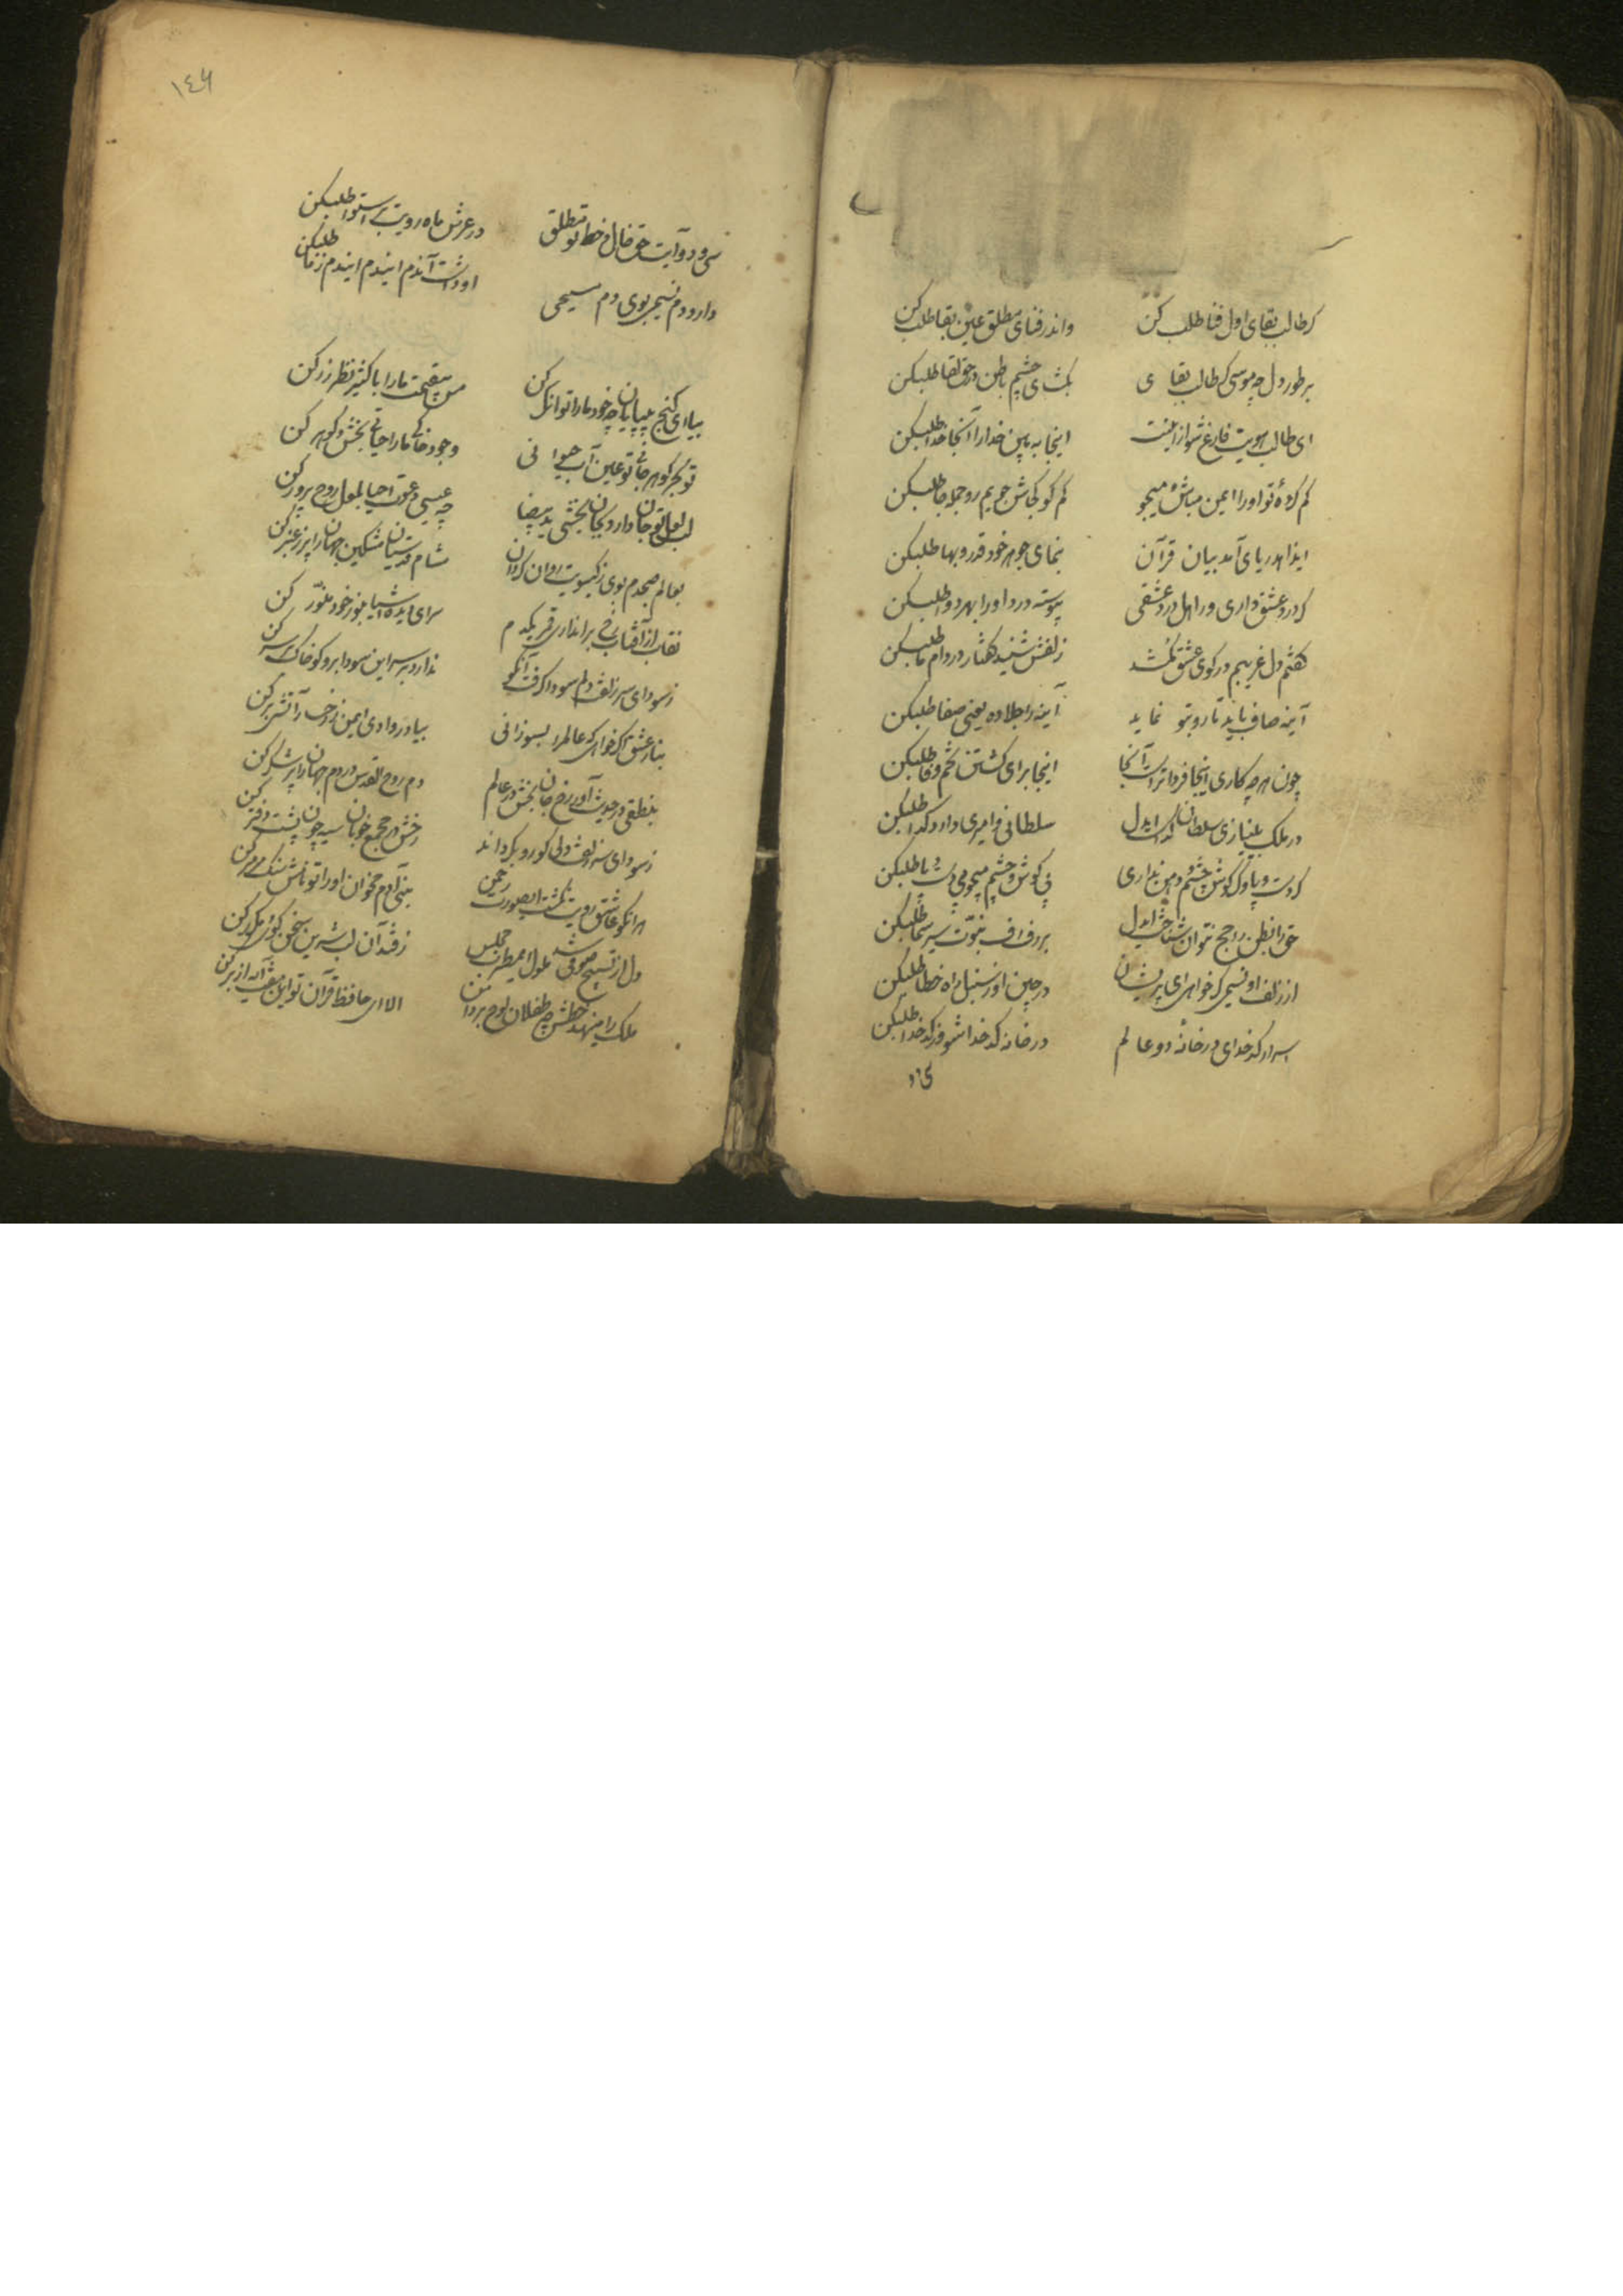 کر طالب بقای اول فنا طلب کن واندر فنای مطلق عین بقا طلب کن
بر طور دل چه موسی کر طالب بقای بکشای چشم باطن در حق لقا طلبکن
ای طالب هویت فارغ شو از اینت اینجا به بین خدا را آنجا خدا طلبکن
کم کردهٔ تو او را ایمن مباش و میجو کم کو کجاش جویم رو جمله جا طلبکن
ایذا هدریای آمد بیان قرآن بنمای جوهر خود قدر و بها طلبکن
کر درد عشق داری ور اهل درد عشقی پیوسته درد او را بهر دوا طلبکن
کفتم دل غریبم در کوی عشق کم شد زلفش شنید کفتار در دام ما طلبکن
آینه صاف باید تا رو بتو نماید آینه را جلا ده یعنی صفا طلبکن
چون هر چه کاری اینجا فردا تراست آنجا اینجا برای کشتن تخم وفا طلبکن
در ملک بینیازی سلطان کداست ایدل سلطانی و امیری دارد کدا طلبکن
کر دست و پا و کر کوش چشم و دهن نداری بی کوش و چشم میجو بی دست و پا طلبکن
حق را بظن راجح نتوان شناخت ایدل بر رفرف نبوت سیر سما طلبکن
از زلف او نسیمی کر خواهی ای پریشان در چین او ز سنبل راه خطا طلبکن
اسرار کدخدای در خانهٔ دو عالم در خانه کدخدا شو وز کدخدا طلبکن
سی و
١٤٦
سی و دو آیت حق خال و خط تو مطلق در عرش ماه رویت استوا طلبکن
دارد دم نسیمی بوی دم مسیحی او داشت آندم ایندم ایندم زما طلبکن
بیا ای کنج بی پایان چه خود ما را توانکر کن مس بیقیمت ما را باکثیر نظر زر کن
تو بحر کوهر جانی تو عین آب حیوانی وجود خاکی ما را حیاتی بخش و کوهر کن
لب لعل تو جان دارد بجان بخشی ید بیضا چه عیسی دعوت احیا بلعل روح پرور کن
بعالم صبحدم بوی ز کیسویت روان کردان مشام قدسیان مشکین جهان را پر ز عنبر کن
نقاب از آفتاب رخ براندازی قمر یکدم سرای دیده اشیا بنور خود منور کن
ز سودای سر زلفش دلم سودا کرفت آنکو ندارد بر سر این سودا برو کو خاک بر سر کن
بنار عشق اکر خواهی که عالم را بسوزانی بیا در وادی ایمن ز رخسار آتشی بر کن
بنطقی در حدیث آور رخ جان بخش در عالم دم روح القدس در دم جهان را پر شکر کن
ز سودای سر زلفش دلی کو رو بکرداند رخش در مجمع خوبان سیه چون پشت دفتر کن
هر آنکو عاشق رویت نکشت ایصورت رحمن بنی آدم مخوان او را تو نامش سنک مرمر کن
دل از تسبیح صوفی شد ملول ای مطرب مجلس ز قند آن لب شیرین سخن کوی مکرر کن
ملک را مینهد خطش چه طفلان لوح بر دامن الا ای حافظ قرآن تو این آیه از بر کن